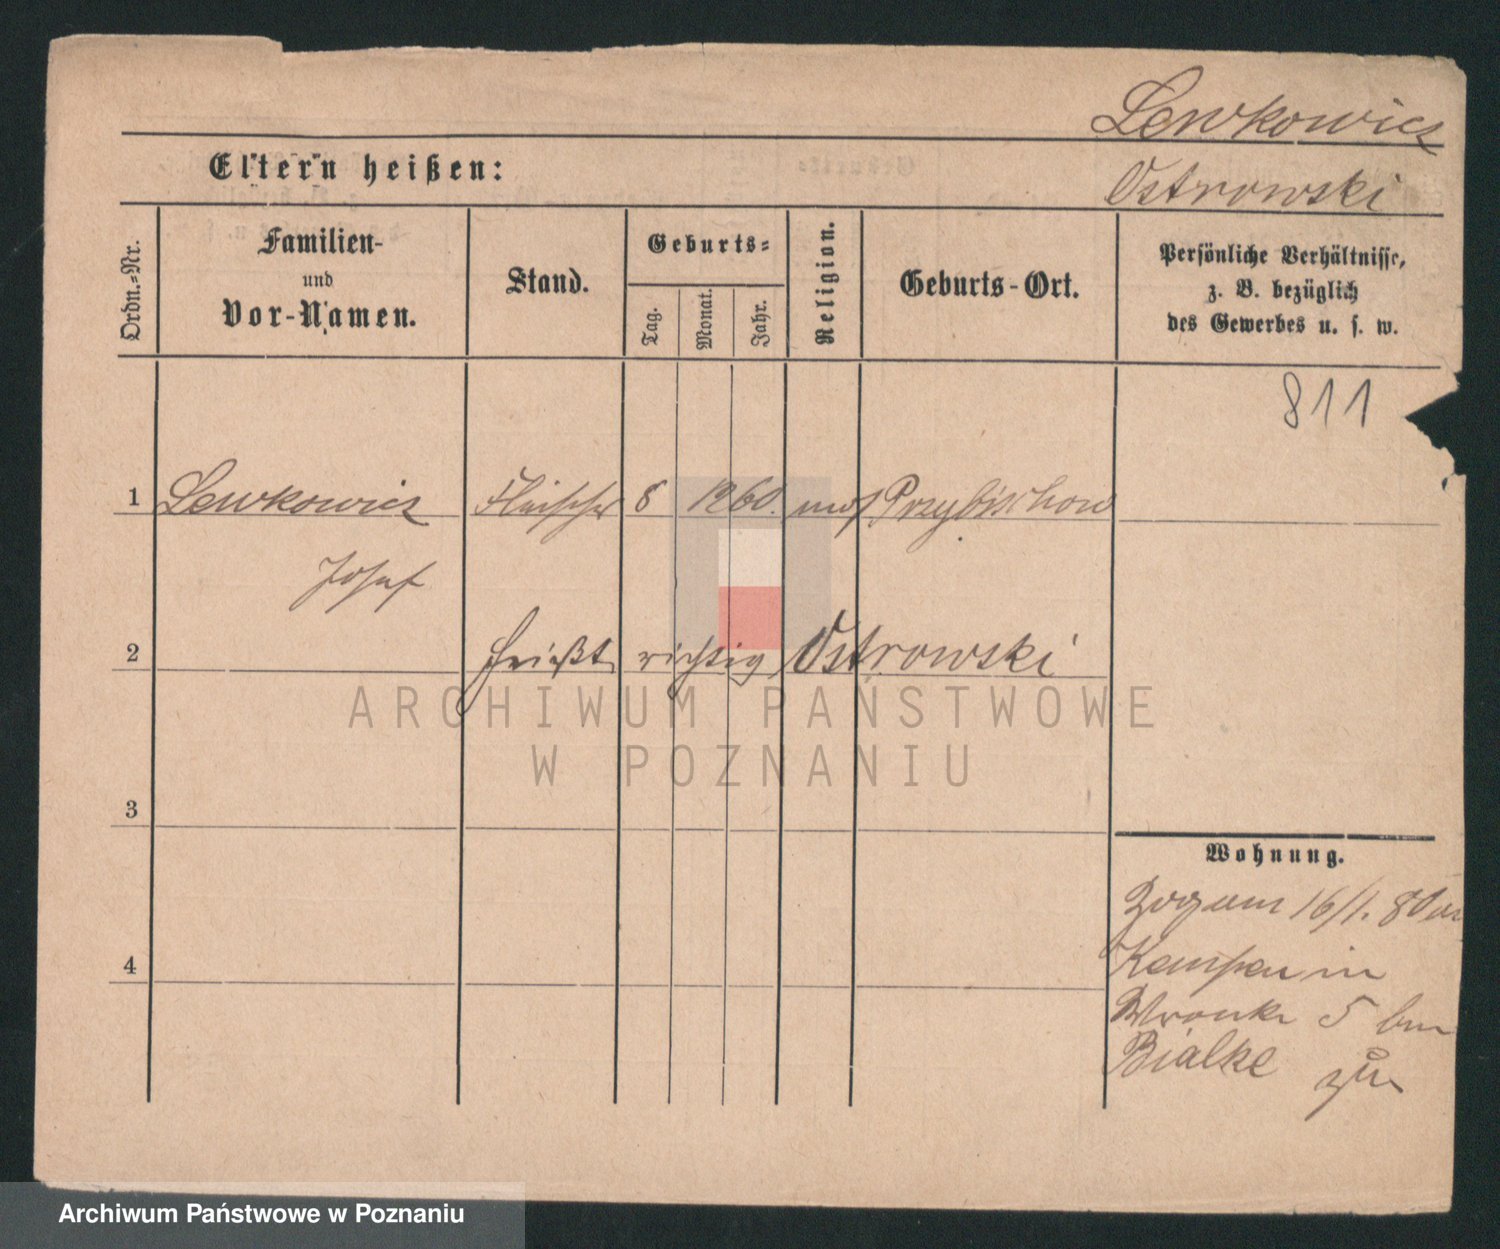 Lewkowicz
Eltern heißen:
Ostrowski
Ordn.-Nr.
Familien-
und
Vor-Namen.
Stand.
Geburts-
Tag.
Monat.
Jahr.
Religion.
Geburts-Ort.
Persönliche Verhältnisse,
z. B. bezüglich
des Gewerbes u. s. w.
811
1 Lewkowicz Fleischer 8 12 60. mos Przybischow
Josef
2 heißt richtig Ostrowski
ARCHIWUM PAŃSTWOWE
W POZNANIU
3
Wohnung.
Zog am 16/1. 80 von
4
Kempen in
Wronke 5 bei
Bialke zu
Archiwum Państwowe w Poznaniu